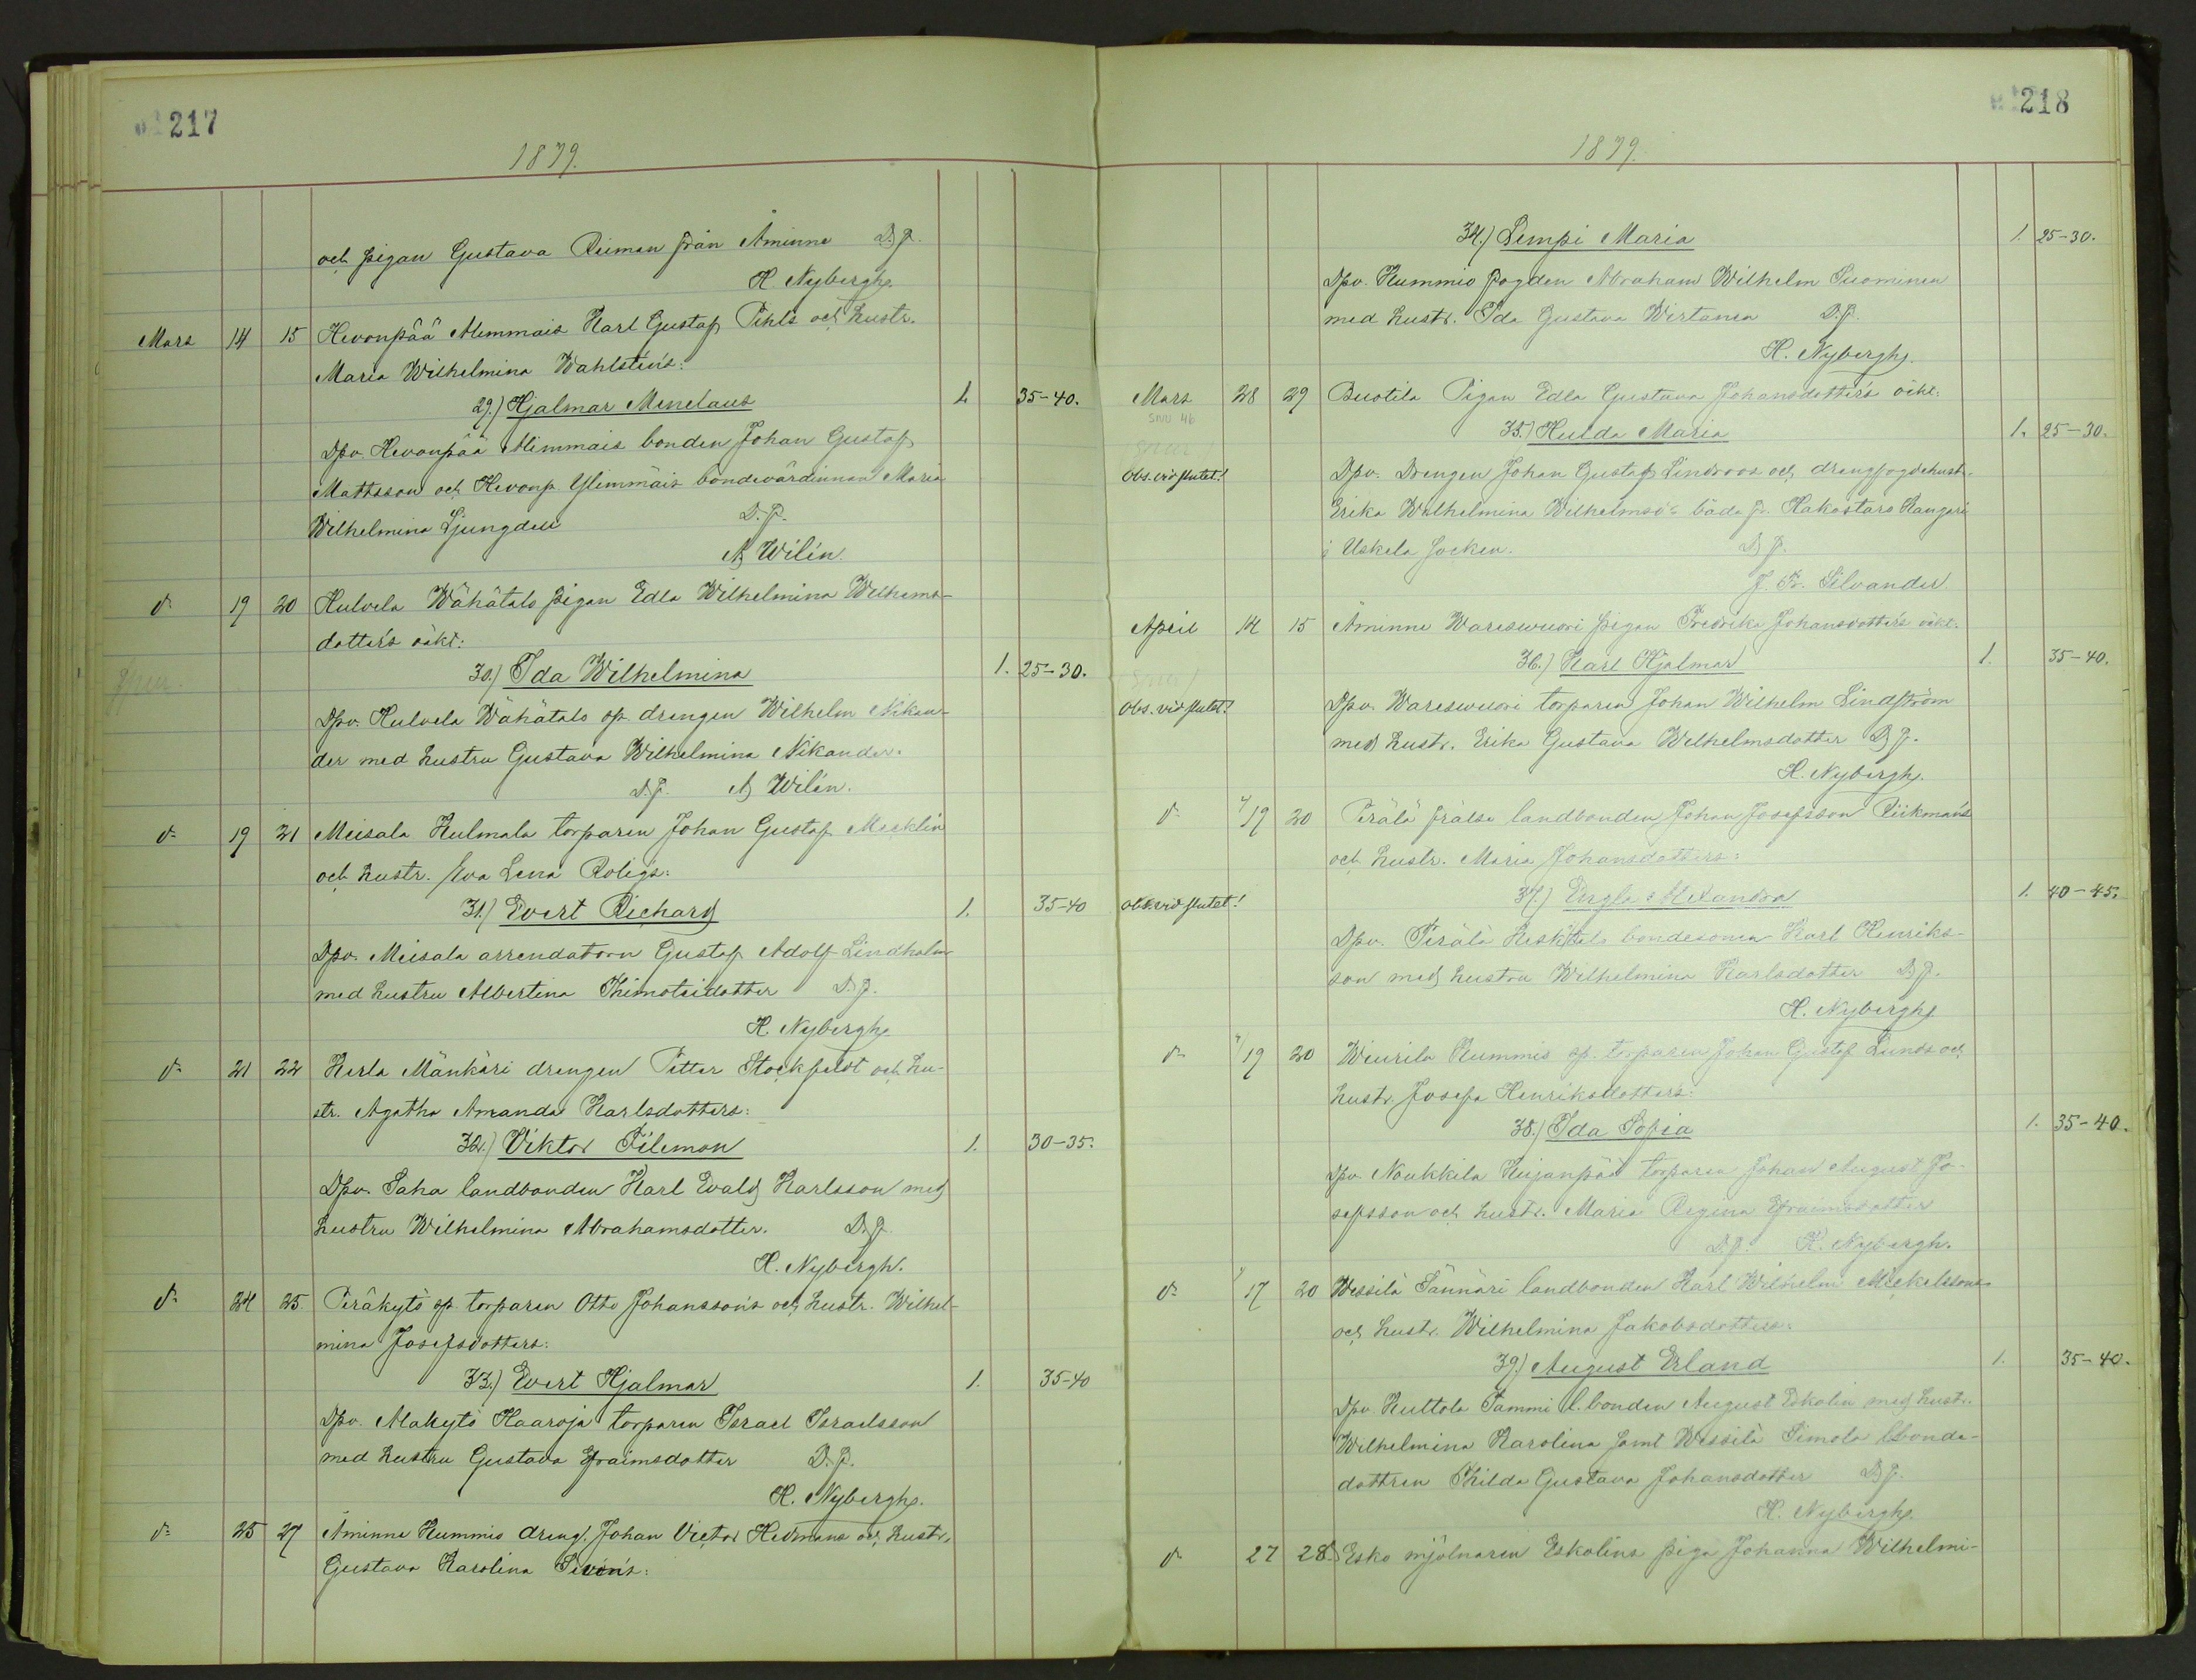 217
1879.
och pigan Gustava Reiman från Åminne D. J.
H. Nybergh.
Mars 14 15 Hevonpää Alimmais Karl Gustaf Pihls och hustr.
Maria Wilhelmina Wahlsten's:
29.) Hjalmar Menelaus 1. 35-40.
Dpv. Hevonpää Alimmais bonden Johan Gustaf
Mattsson och Hevonp. Ylimmäis bondevärdinnan Maria
Wilhelmina Ljungdell D. J.
A Wilén.
d:o 19 20 Hulvela Wähätalo pigan Edla Wilhelmina Wilhelms-
dotter's oäkt:
30.) Ida Wilhelmina 1. 25-30.
Dpv. Hulvela Wähätalo sp. drengen Wilhelm Nikan-
der med hustru Gustava Wilhelmina Nikander.
D. J. A Wilén.
d:o 19 21 Meisala Hulmala torparen Johan Gustaf Mecklin
och hustr. Eva Lena Roligs:
31.) Evert Richard 1. 35-40
Dpv. Meisala arrendatorn Gustaf Adolf Lindholm
med hustru Albertina Thimoteidotter D. J.
H. Nybergh
d:o 21 22 Kerla Mänkäri drengen Petter Stockfeldt och hu-
str. Agatha Amanda Karlsdotters:
32.) Viktor Filemon 1. 30-35.
Dpv. Saha landbonden Karl Evald Karlsson med
hustru Wilhelmina Abrahamsdotter. D. J.
H. Nybergh.
d:o 24 25 Peräkytö sp. torparen Otto Johansson's och hustr. Wilhel-
mina Josefsdotters:
33.) Evert Hjalmar 1. 35-40
Dpv. Alakytö Haaroja torparen Israel Israelsson
med hustru Gustava Efraimsdotter D. J.
H. Nybergh.
d:o 25 27 Åminne Kummio dreng. Johan Victor Hedmans och hustr.
Gustava Karolina Sivéns:
218
1879.
34.) Lempi Maria 1. 25-30.
Dpv. Kummio fogden Abraham Wilhelm Suominen
med hustr. Ida Gustava Wirtanen D. J.
H. Nybergh.
Mars 28 29 Buotila Pigan Edla Gustava Johansdotter's oäkt:
35.) Hulda Maria 1. 25-30.
Obs. vid slutet! Dpv. Drengen Johan Gustaf Lindroos och drengfogdehustr.
Erika Wilhelmina Wilhelmsd:r båda fr. Hakostaro Kangari
i Uskela socken. D J.
J. Fr. Silvander.
April 14 15 Åminne Wareswuori pigan Fredrika Johansdotter's oäkt:
36.) Karl Hjalmar 1. 35-40.
Obs. vid slutet! Dpv. Wareswuori torparen Johan Wilhelm Lindström
med hustr. Erika Gustava Wilhelmsdotter D J.
H. Nybergh.
d:o 19 20 Perälä frälse landbonden Johan Josefsson Riikman's
och hustr. Maria Johansdotters:
Obs. vid slutet! 37.) Engla Alexandra 1. 40-45.
Dpv. Perälä Keskitalo bondesonen Karl Henriks-
son med hustru Wilhelmina Karlsdotter D J.
H. Nybergh
d:o 19 20 Wiurila Kummio sp. torparen Johan Gustaf Lunds och
hustr. Josefa Henriksdotters:
38.) Ida Sofia 1. 35-40.
Dpv. Noukkila Kujanpää torparen Johan August Jo-
sefsson och hustr. Maria Regina Efraimsdotter
D. J. H. Nybergh.
d:o 17 20 Wessilä Sännäri landbonden Karl Wilhelm Mickelssons
och hustr. Wilhelmina Jakobsdotters:
39.) August Erland 1. 35-40.
Dpv. Kuttola Tammi l.bonden August Eskolin med hustr.
Wilhelmina Karolina samt Wessilä Simola l.bonde-
dottren Hilda Gustava Johansdotter D J.
H. Nybergh.
d:o 27 28 Esko mjölnaren Eskolins piga Johanna Wilhelmi-